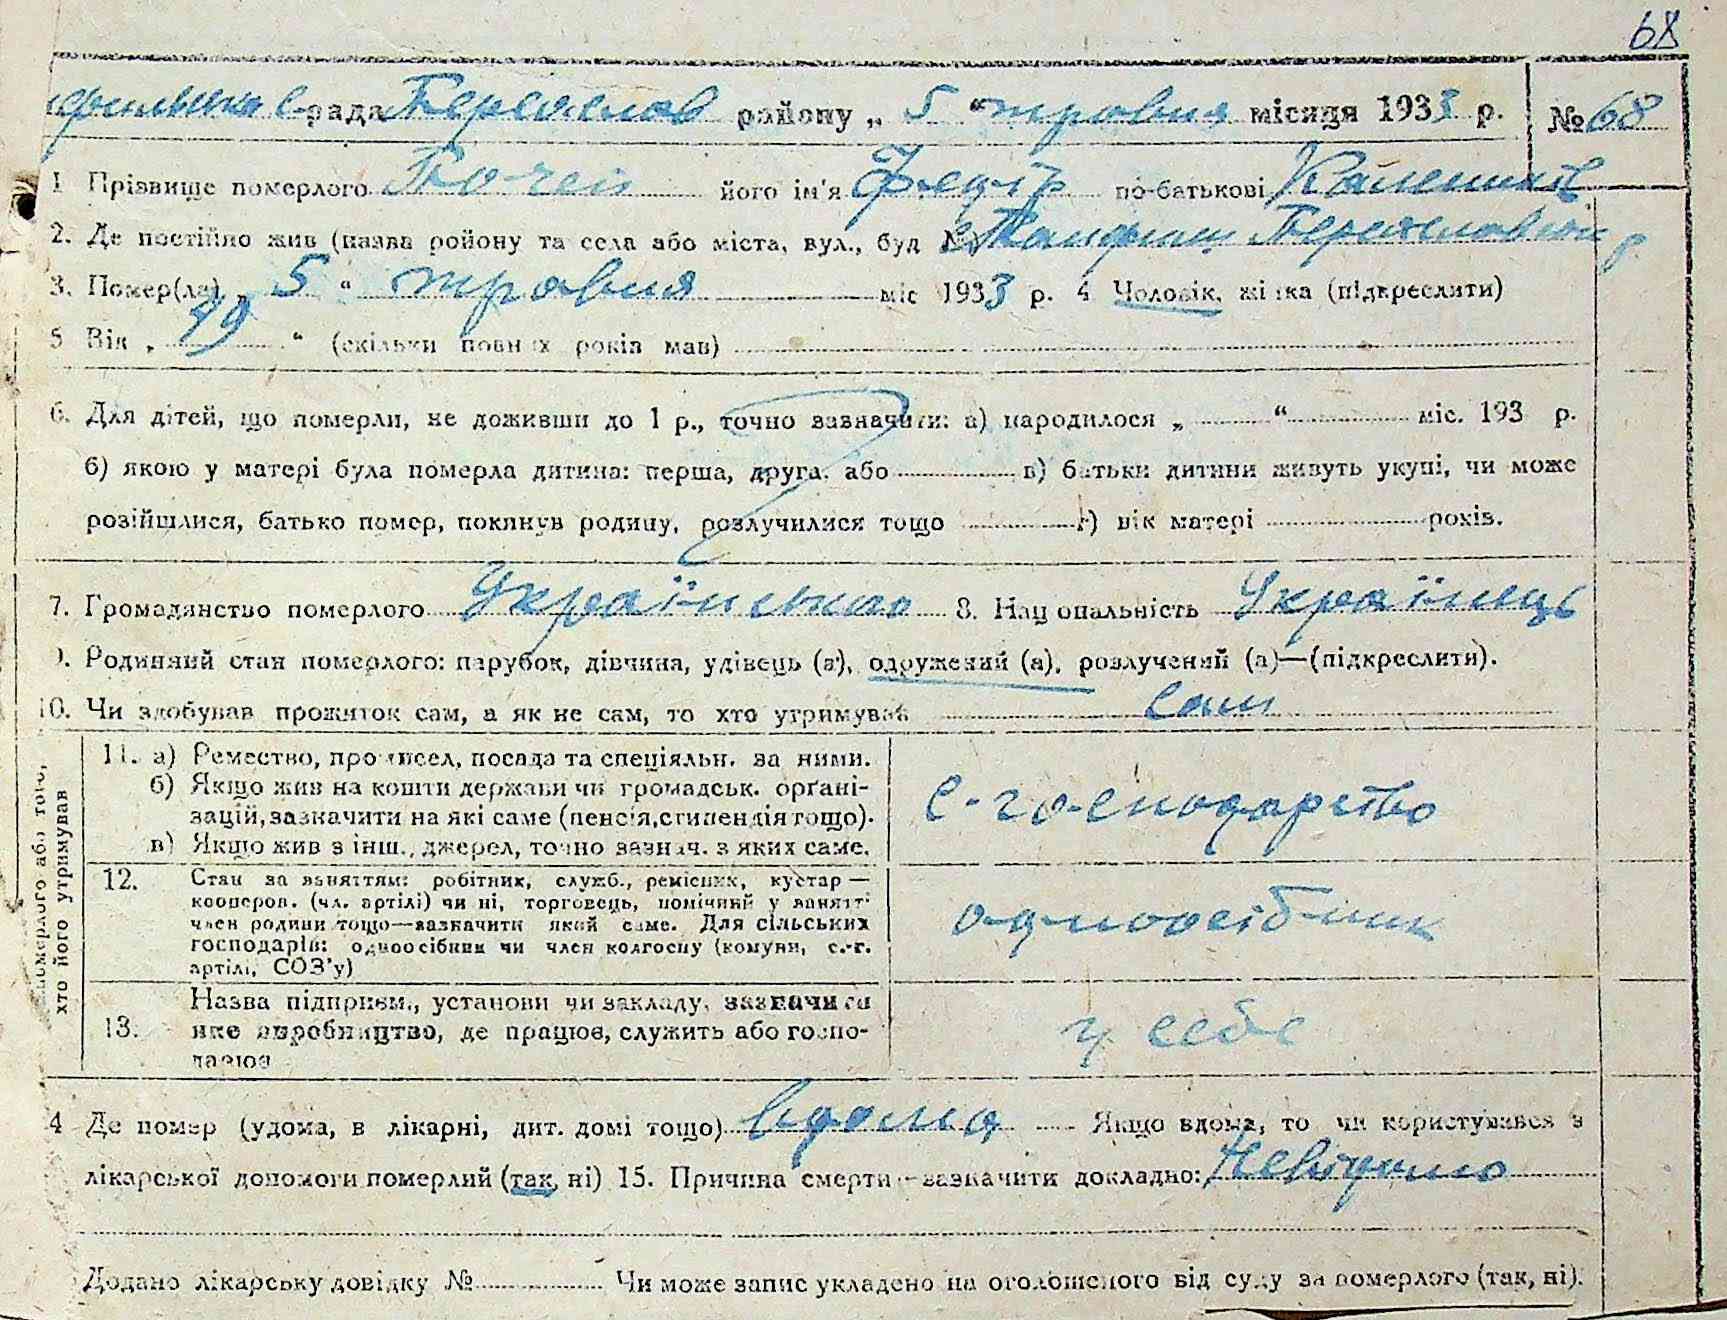 68
рада Береслав району „ 5 “ травня місяця 1933 р. № 68
1 Прізвище померлого його ім'я Федір по-батькові
2. Де постійно жив (назва ройону та села або міста, вул., буд №
3. Помер(ла) „ 5 “ травня міс 1933 р. 4 Чоловік, жінка (підкреслити)
5 Вік „ “ (скільки повних років мав)
6. Для дітей, що померли, не доживши до 1 р., точно зазначити: а) народилося „ “ міс. 193 р.
б) якою у матері була померла дитина: перша, друга, або в) батьки дитини живуть укупі, чи може
розійшлися, батько помер, покинув родину, розлучилися тощо г) вік матері років.
7. Громадянство померлого 8. Національність Українець
9. Родинний стан померлого: парубок, дівчина, удівець (а), одружений (а), розлучений (а)—(підкреслити).
10. Чи здобував прожиток сам, а як не сам, то хто утримував сам
померлого або того,
хто його утримував
11. а) Ремество, промисел, посада та спеціяльн. за ними.
б) Якщо жив на кошти держави чи громадськ. орґані-
зацій, зазначити на які саме (пенсія, стипендія тощо).
в) Якщо жив з інш., джерел, точно зазнач. з яких саме.
с-господарство
12. Стан за заняттям: робітник, служб., ремісник, кустар —
кооперов. (чл. артілі) чи ні, торговець, помічний у занятті
член родини тощо—зазначити який саме. Для сільських
господарів: одноосібник чи член колгоспу (комуни, с.-г.
артілі, СОЗ'у)
одноосібник
Назва підприєм., установи чи закладу, зазначити
13. яке виробництво, де працює, служить або госпо-
дарює
у себе
14 Де помер (удома, в лікарні, дит. домі тощо) вдома Якщо вдома, то чи користувався з
лікарської допомоги померлий (так, ні) 15. Причина смерти—зазначити докладно: Невідомо
Додано лікарську довідку № Чи може запис укладено на оголошеного від суду за померлого (так, ні).